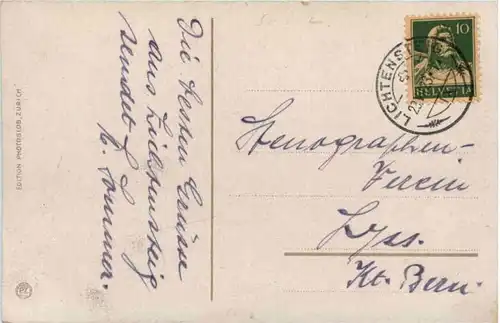 Die besten Grüsse
aus Lichtensteig
sendet
Sommer.
Stenographen-
Verein
Lyss.
Kt. Bern
10
HELVETIA
LICHTENSTEIG
EDITION PHOTOGLOB, ZÜRICH
PZ